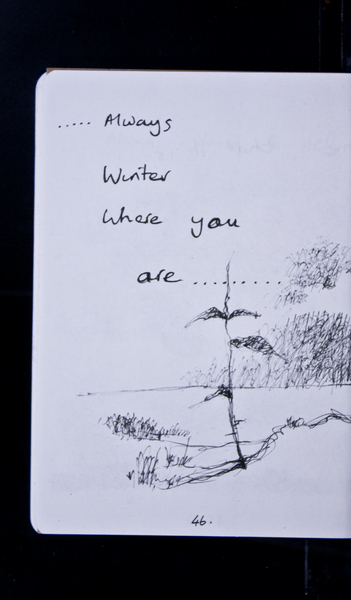 ..... Always
Winter
Where you
are ..........
46.